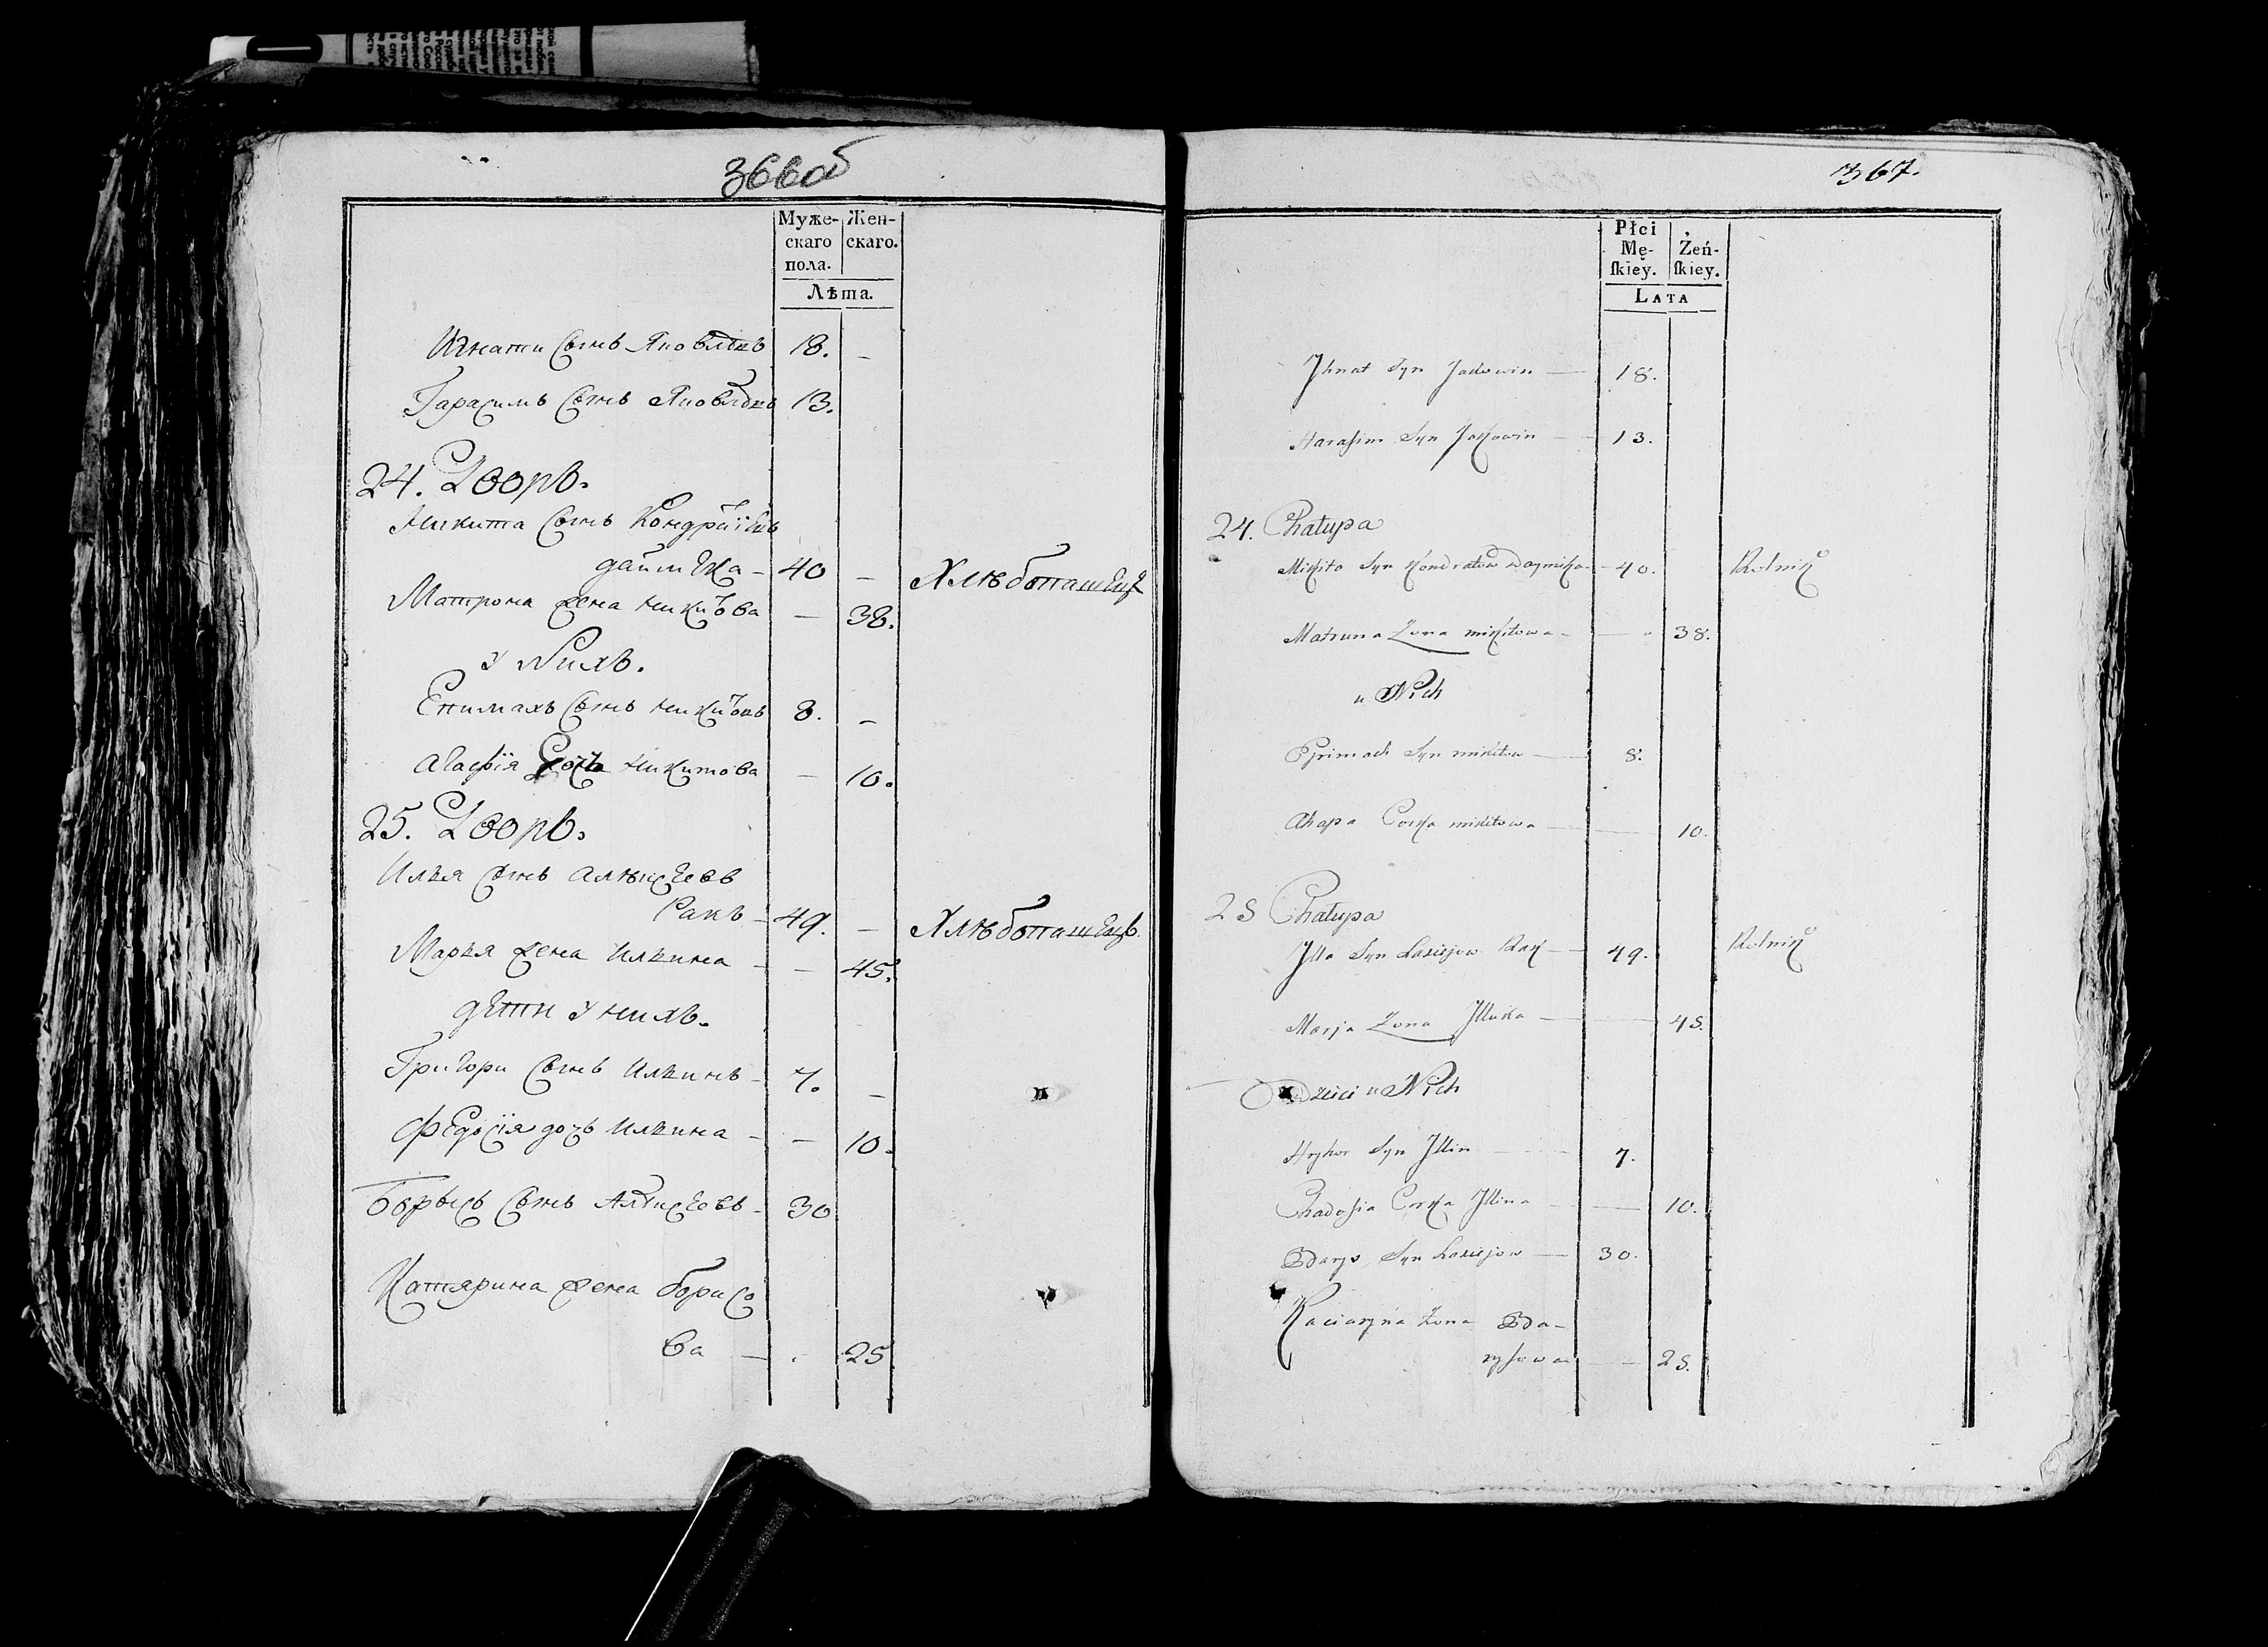 366об
Муже-
скаго
пола.
Жен-
скаго.
Лѣта.
Игнати сынъ Яковлевъ 18. –
Гарасимъ сынъ Яковлевъ 13.
24. Дворъ.
Никита сынъ Кондратевъ
– 40 – Хлѣбопашецъ
Матрона жена Никитова – 38.
У Нихъ.
Епимахъ сынъ Никитовъ 8. –
Агафія дочь Никитова – 10.
25. Дворъ.
Илья сынъ Алексеевъ
Ракъ – 49. – Хлѣбопашецъ.
Марья жена Ильина – – 45.
дети у нихъ.
Григори сынъ Ильинъ – 7. –
Федосія дочь Ильина – – 10.
Борысъ сынъ Алексеевъ – 30
Катярина жена Борисо
ва – 25
367.
Płci
Mę-
ſkiey.
Żeń-
ſkiey.
Lata
Jhnat Syn — 18.
Harasim Syn Jakowin — 13.
24. Chałupa
Mikita Syn Kondratow Daymika – 40. Rolnik
Matruna Zona mikitowa – 38.
u Nich
Syn mikitow — 8.
Ahapa Corka mikitowa — 10.
25 Chałupa
Jlla Syn Laxiejow Rak — 49. Rolnik
Marja Zona — 45.
Dzieci u Nich
Hryhor Syn Jllin — 7.
Chadosia Corka Jllina — 10.
Syn Laxiejow — 30.
Kaciaryna Zona Bda-
rysowa — 25.